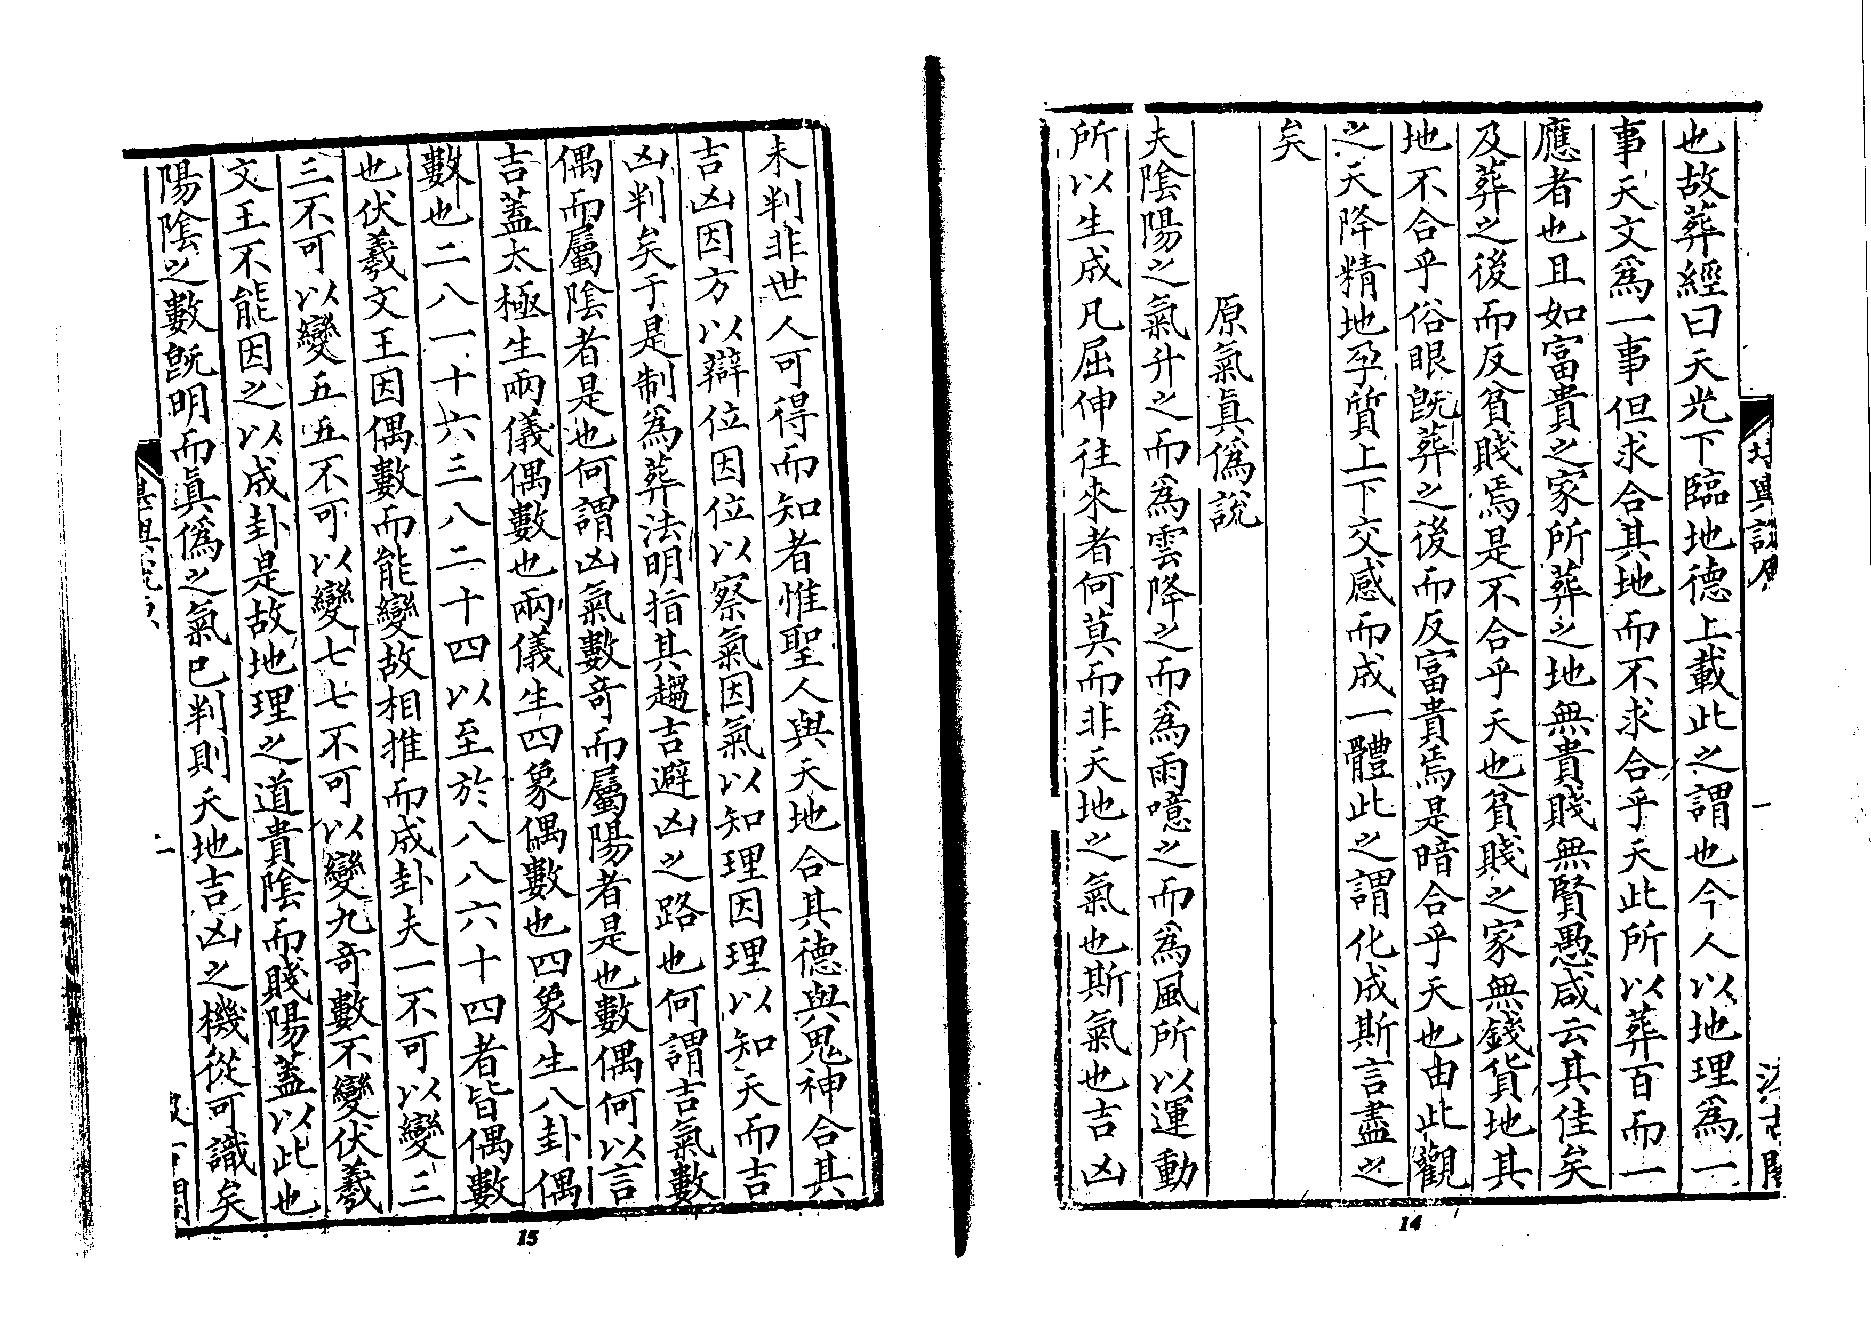 也故葬經曰天光下臨地德上載此之謂也今人以地理爲一
事天文爲一事但求合其地而不求合乎天此所以葬百而一
應者也且如富貴之家所葬之地無貴賤無賢愚咸云其佳矣
及葬之後而反貧賤焉是不合乎天也貧賤之家無錢貨地其
地不合乎俗眼旣葬之後而反富貴焉是暗合乎天也由此觀
之天降精地孕質上下交感而成一體此之謂化成斯言盡之
矣
原氣眞僞說
夫陰陽之氣升之而爲雲降之而爲雨噫之而爲風所以運動
所以生成凡屈伸往來者何莫而非天地之氣也斯氣也吉凶
14
未判非世人可得而知者惟聖人與天地合其德與鬼神合其
吉凶因方以辯位因位以察氣因氣以知理因理以知天而吉
凶判矣于是制爲葬法明指其趨吉避凶之路也何謂吉氣數
偶而屬陰者是也何謂凶氣數奇而屬陽者是也數偶何以言
吉蓋太極生兩儀偶數也兩儀生四象偶數也四象生八卦偶
數也二八一十六三八二十四以至於八八六十四者皆偶數
也伏羲文王因偶數而能變故相推而成卦夫一不可以變三
三不可以變五五不可以變七七不可以變九奇數不變伏羲
文王不能因之以成卦是故地理之道貴陰而賤陽蓋以此也
陽陰之數旣明而眞僞之氣已判則天地吉凶之機從可識矣
二
15